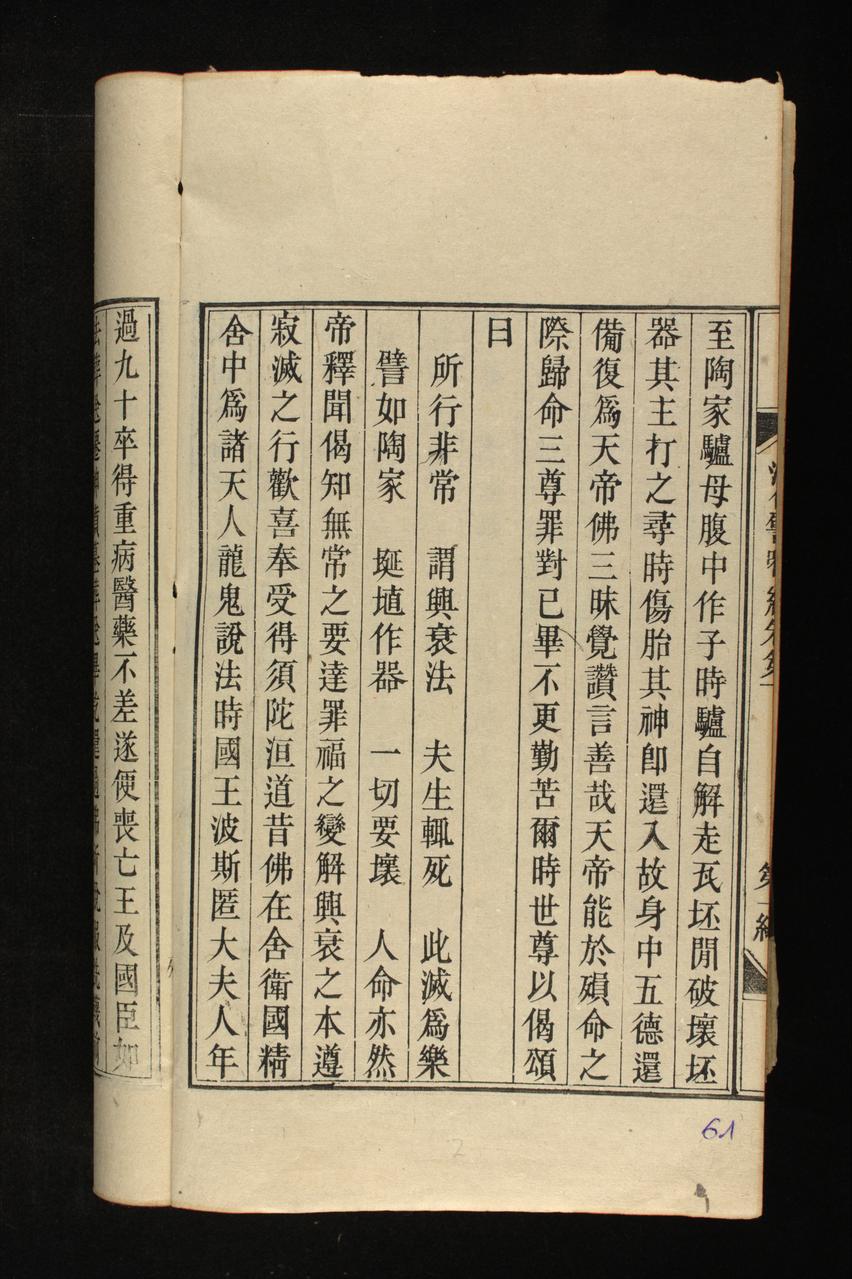 至陶家驢母腹中作子時驢自解走瓦坯閒破壞坯
器其主打之尋時傷胎其神卽還入故身中五德還
備復爲天帝佛三昧覺讚言善哉天帝能於殞命之
際歸命三尊罪對已畢不更勤苦爾時世尊以偈頌
曰
所行非常　謂興衰法　夫生輒死　此滅爲樂
譬如陶家　埏埴作器　一切要壞　人命亦然
帝釋聞偈知無常之要達罪福之變解興衰之本遵
寂滅之行歡喜奉受得須陀洹道昔佛在舍衛國精
舍中爲諸天人龍鬼說法時國王波斯匿大夫人年
過九十卒得重病醫藥不差遂便喪亡王及國臣如
61